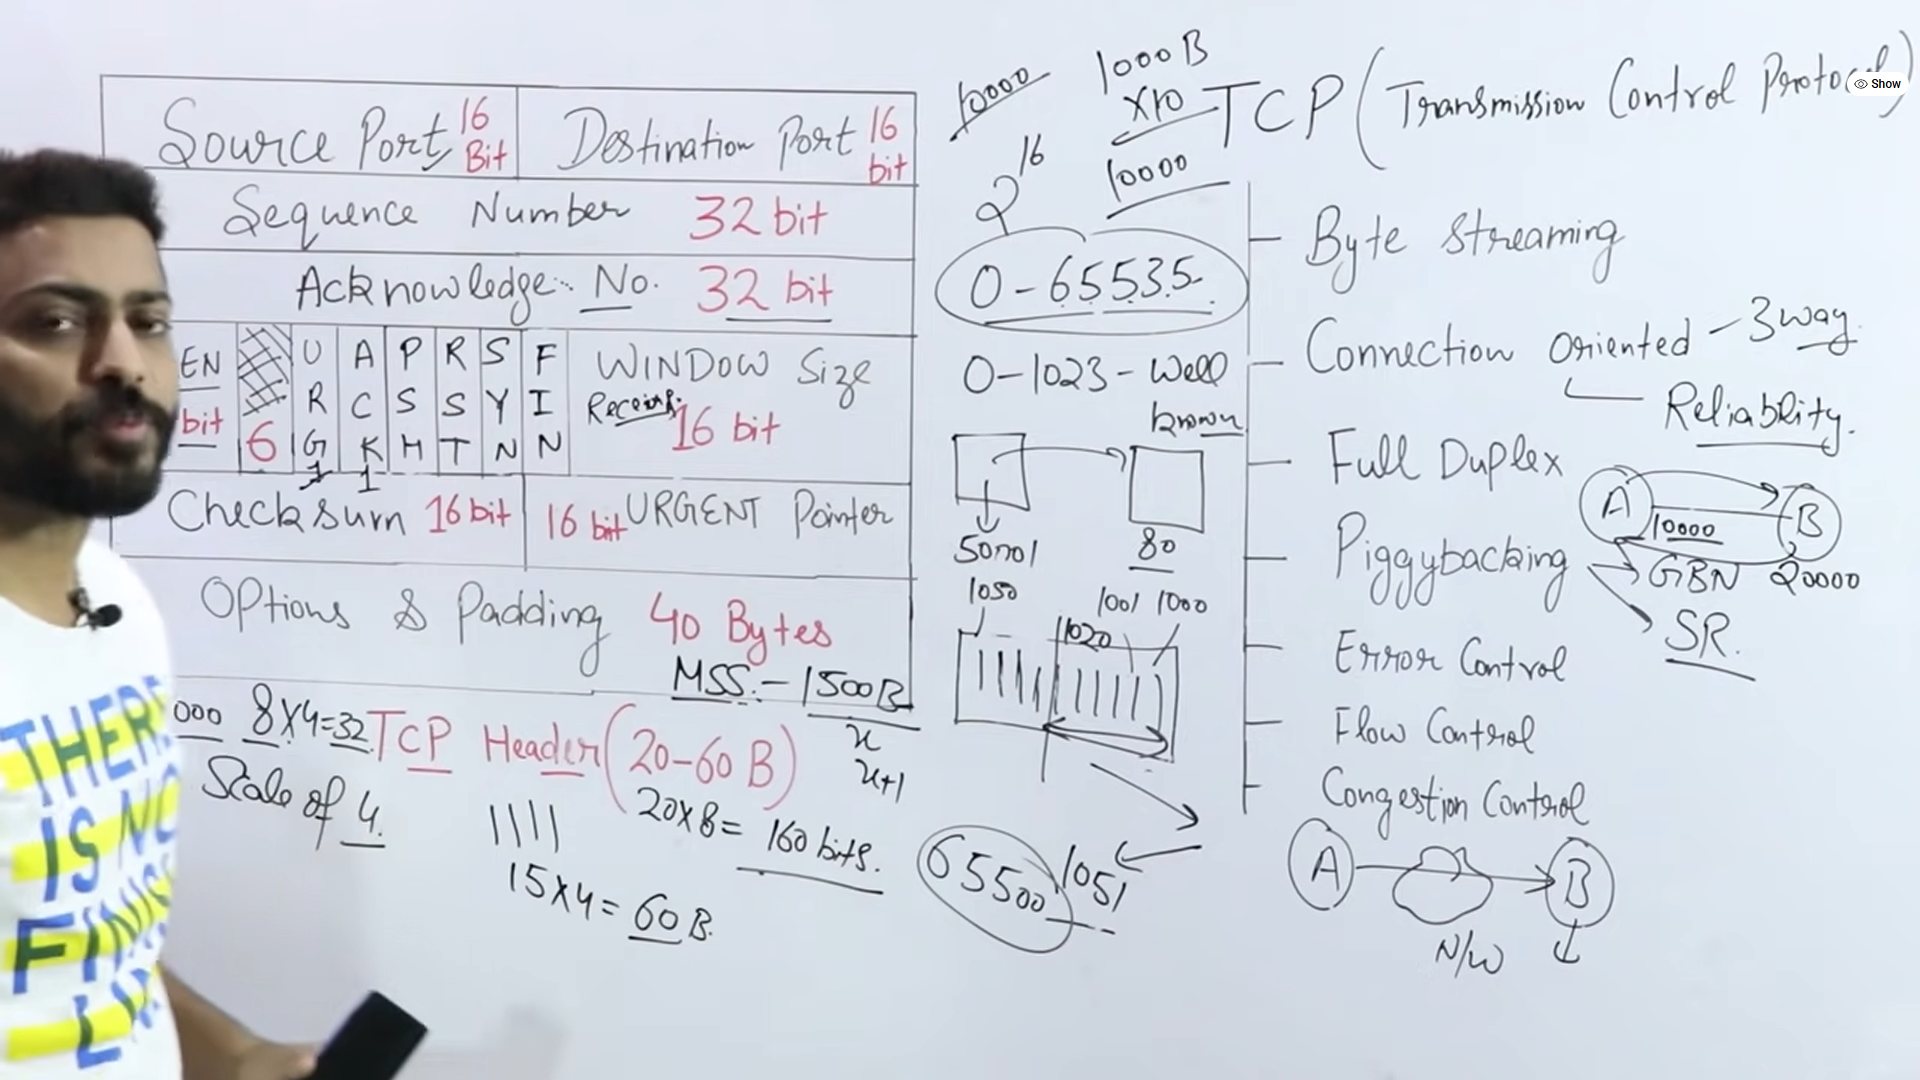 Source Port 16 Bit
Destination Port 16 bit
Sequence Number 32 bit
Acknowledge No. 32 bit
EN
bit
6
URG
1
ACK
1
PSH
RST
SYN
FIN
WINDOW Size
16 bit
Checksum 16 bit
16 bit URGENT Pointer
Options & Padding 40 Bytes
MSS - 1500B
x
x+1
000 8X4=32
TCP Header (20-60 B)
Scale of 4.
20X8= 160 bits.
1111
15X4= 60 B.
10000
1000 B
X10
10000
2^16
0-65535
0-1023-Well
known
50001
80
1050
1001 1000
1020
65500
1051
TCP (Transmission Control Protocol)
Show
Byte Streaming
Connection Oriented - 3 way
Reliability.
Full Duplex
A
B
10000
20000
Piggybacking
GBN
SR.
Error Control
Flow Control
Congestion Control
A
B
N/W
THERE
IS NO
FINISH
LI